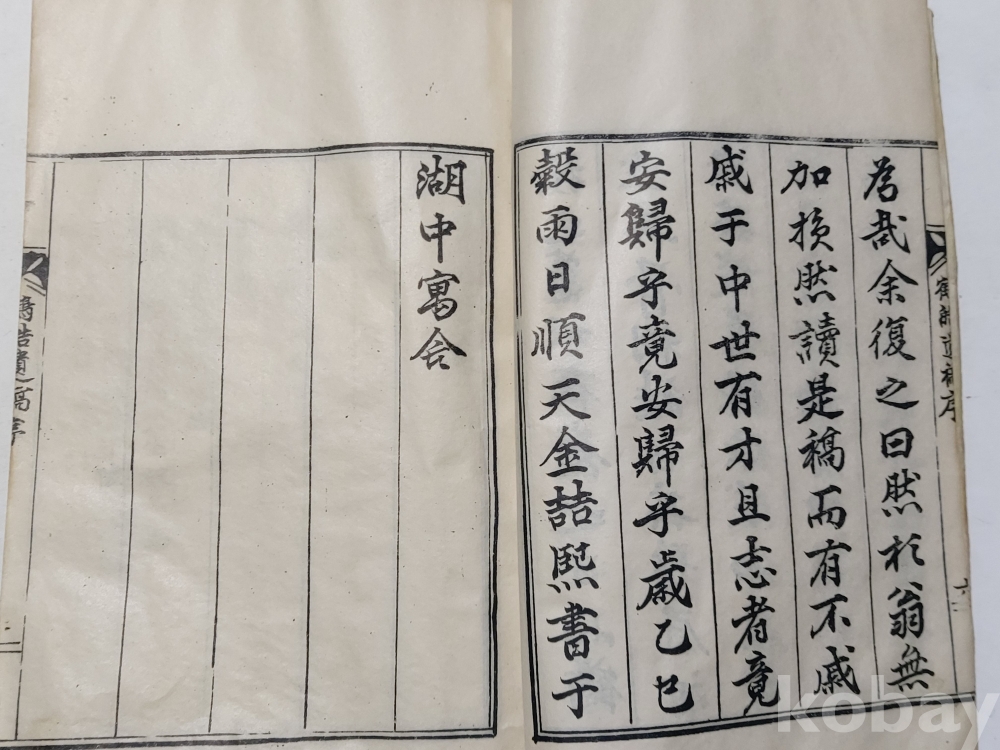 為哉余復之曰然於翁無
加損然讀是稿而有不戚
戚于中世有才且志者竟
安歸乎竟安歸乎歲乙巳
穀雨日順天金喆熙書于
湖中寓舍
遺稿序
kobay